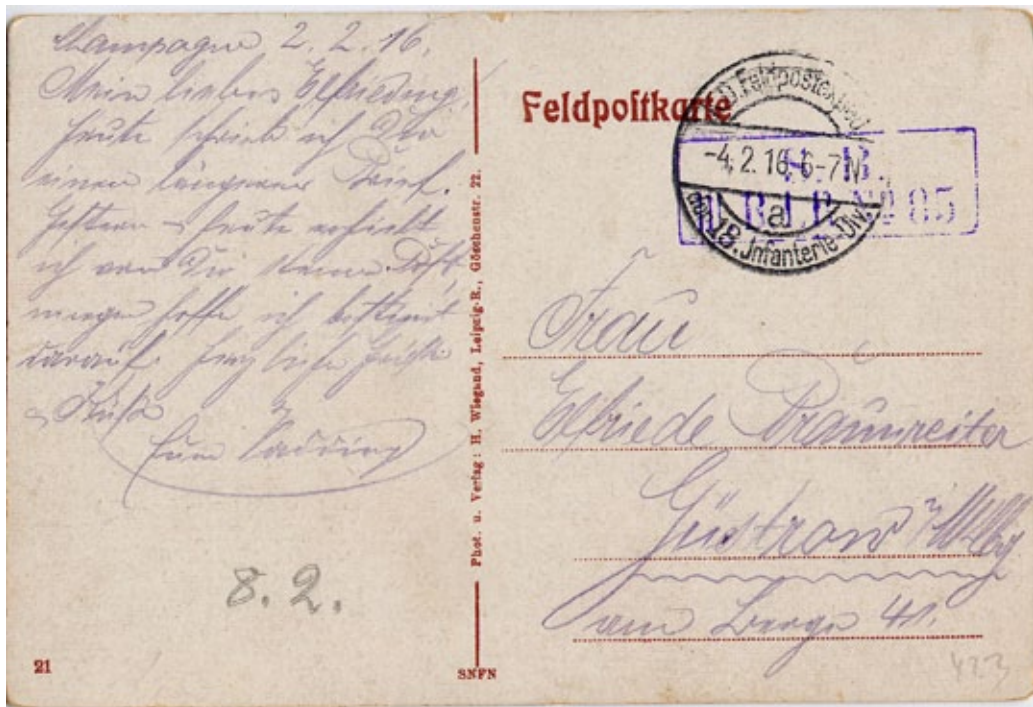 Champagne 2. 2. 16.
Mein liebes Elfrieding,
heute schrieb ich Dir
einen längeren Brief.
Gestern u. heute erhielt
ich von Dir keine Post,
morgen hoffe ich bestimmt
darauf. Herzliche Grüße
u. Küsse
Dein
8. 2.
21
Phot. u. Verlag: H. Wiegand, Leipzig-R., Göschenstr. 22.
SNFN
Feldpostkarte
K.D. Feldpostexped.
-4. 2. 16. 6-7 N.
a
der 18. Infanterie-Div.
S. B.
85
Frau
Elfriede Bräunreiter
Güstrow i/Mklbg
am Berge 41.